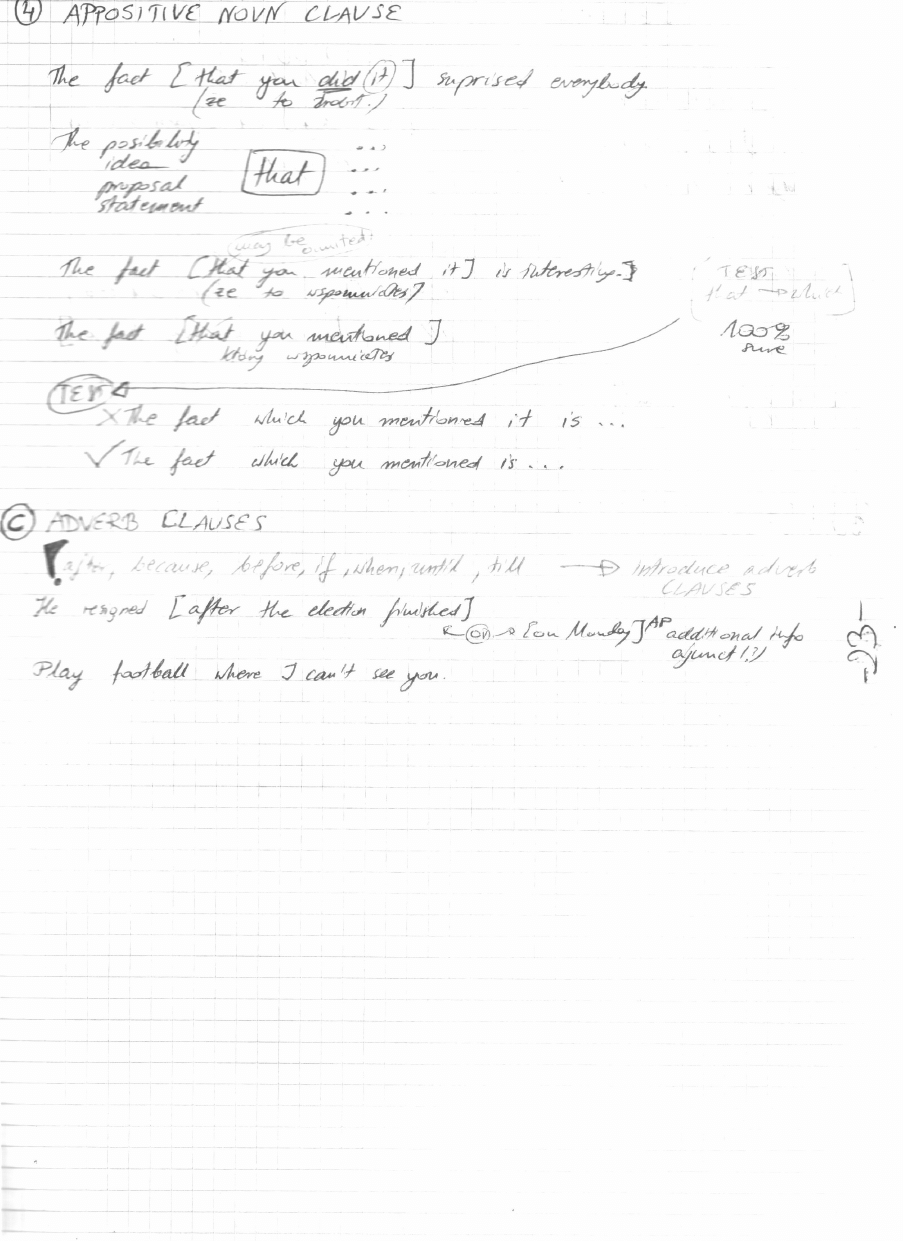 ④ APPOSITIVE NOUN CLAUSE
The fact [that you did it] suprised everybody.
(ze to zrobił.)
The posibility ...
idea ...
proposal that ...
statement ...
may be omited.
The fact [that you mentioned it] is interesting.]
(ze to wspomniałeś)
TEST
that → which
The fact [that you mentioned]
który wspomniałeś
100%
sure
TEST
X The fact which you mentioned it is ...
✓ The fact which you mentioned is ...
Ⓒ ADVERB CLAUSES
! after, because, before, if, when, until, till → introduce adverb
CLAUSES
He resigned [after the election finished]
← on → [on Monday] AP additional info
ajunct (?)
Play football where I can't see you.
-23-